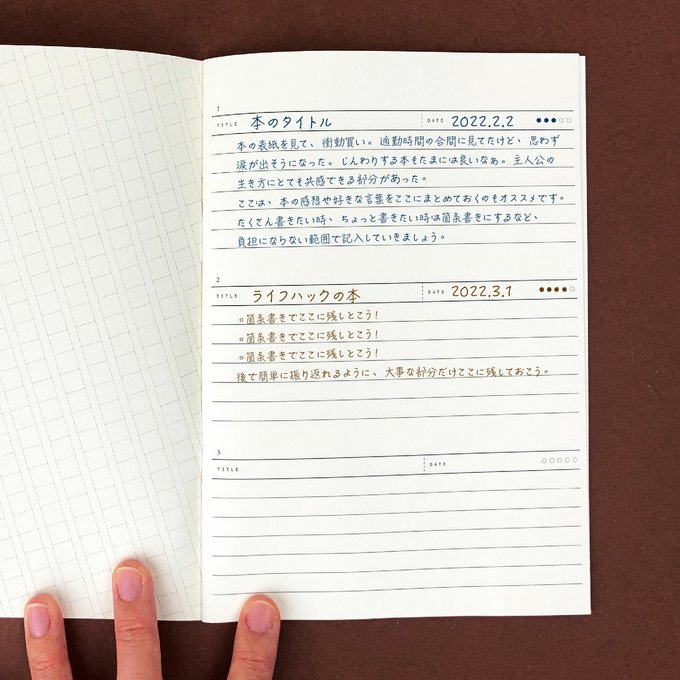 1
TITLE 本のタイトル DATE 2022.2.2
本の表紙を見て、衝動買い。通勤時間の合間に見てたけど、思わず
涙が出そうになった。じんわりする本もたまには良いなぁ。主人公の
生き方にとても共感できる部分があった。
ここは、本の感想や好きな言葉をここにまとめておくのもオススメです。
たくさん書きたい時、ちょっと書きたい時は箇条書きにするなど、
負担にならない範囲で記入していきましょう。
2
TITLE ライフハックの本 DATE 2022.3.1
▫箇条書きでここに残しとこう!
▫箇条書きでここに残しとこう!
▫箇条書きでここに残しとこう!
後で簡単に振り返れるように、大事な部分だけここに残しておこう。
3
TITLE DATE